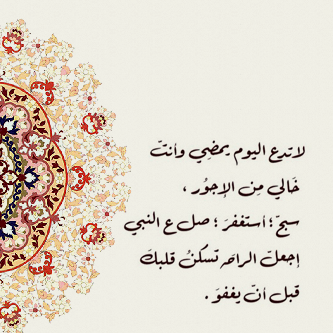 لاتدع اليوم يمضي وأنتَ
خَالي مِن الإجوُر ،
سبحّ ؛ أستغفرَ ؛ صل ع النبي
إجعلَ الراحه تسكنُ قلبكَ
قبل أنّ يغفوَ .